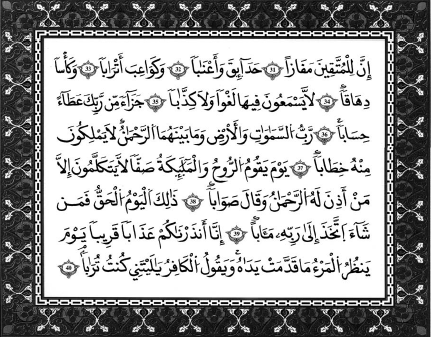 إِنَّ لِلْمُتَّقِينَ مَفَازًا ٣١ حَدَآئِقَ وَأَعْنَٰبًا ٣٢ وَكَوَاعِبَ أَتْرَابًا ٣٣ وَكَأْسًا
دِهَاقًا ٣٤ لَّا يَسْمَعُونَ فِيهَا لَغْوًا وَلَا كِذَّٰبًا ٣٥ جَزَآءً مِّن رَّبِّكَ عَطَآءً
حِسَابًا ٣٦ رَّبُّ السَّمَٰوَٰتِ وَالْأَرْضِ وَمَا بَيْنَهُمَا الرَّحْمَٰنُ لَا يَمْلِكُونَ
مِنْهُ خِطَابًا ٣٧ يَوْمَ يَقُومُ الرُّوحُ وَالْمَلَٰٓئِكَةُ صَفًّا لَّا يَتَكَلَّمُونَ إِلَّا
مَنْ أَذِنَ لَهُ الرَّحْمَٰنُ وَقَالَ صَوَابًا ٣٨ ذَٰلِكَ الْيَوْمُ الْحَقُّ فَمَن
شَآءَ اتَّخَذَ إِلَىٰ رَبِّهِ مَـَٔابًا ٣٩ إِنَّآ أَنذَرْنَٰكُمْ عَذَابًا قَرِيبًا يَوْمَ
يَنظُرُ الْمَرْءُ مَا قَدَّمَتْ يَدَاهُ وَيَقُولُ الْكَافِرُ يَٰلَيْتَنِي كُنتُ تُرَٰبًا ٤٠